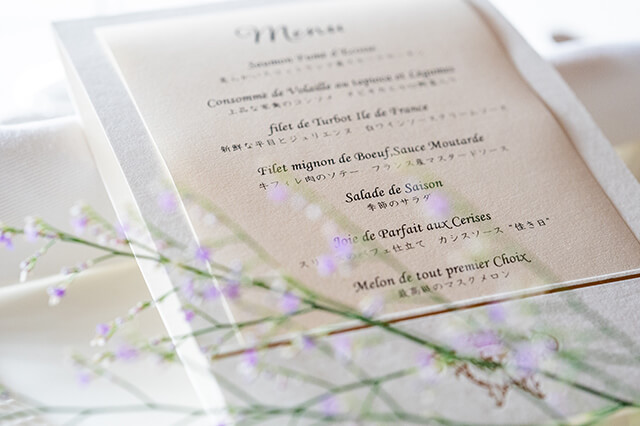 Menu
Saumon Fumé d'Ecosse
Consommé de Volaille au tapioca et Légumes
上品な家禽のコンソメ
filet de Turbot Ile de France
新鮮な平目とジュリエンヌ 白ワインソースクリームソース
Filet mignon de Boeuf,Sauce Moutarde
牛フィレ肉のソテー フランス産マスタードソース
Salade de Saison
季節のサラダ
Joie de Parfait aux Cerises
パフェ仕立て カシスソース “佳き日”
Melon de tout premier Choix
最高級のマスクメロン